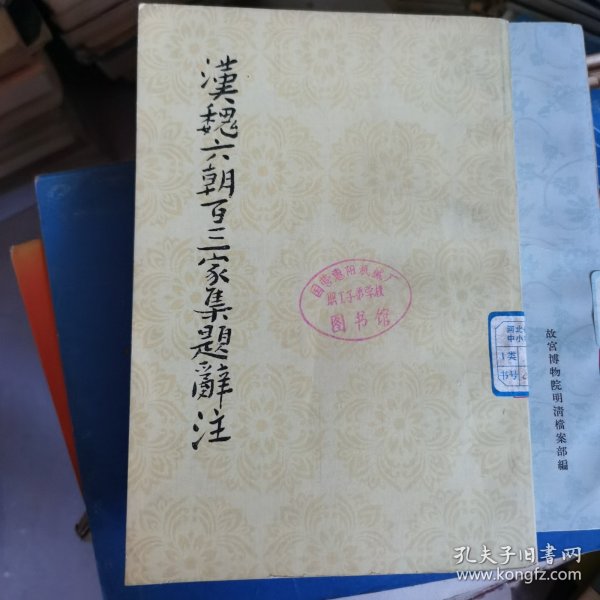 漢魏六朝百三家集題辭注
国营惠阳机械厂
职工子弟学校
图书馆
河北
中小
1类
书号
故宫博物院明清檔案部編
孔夫子旧书网
www.kongfz.com